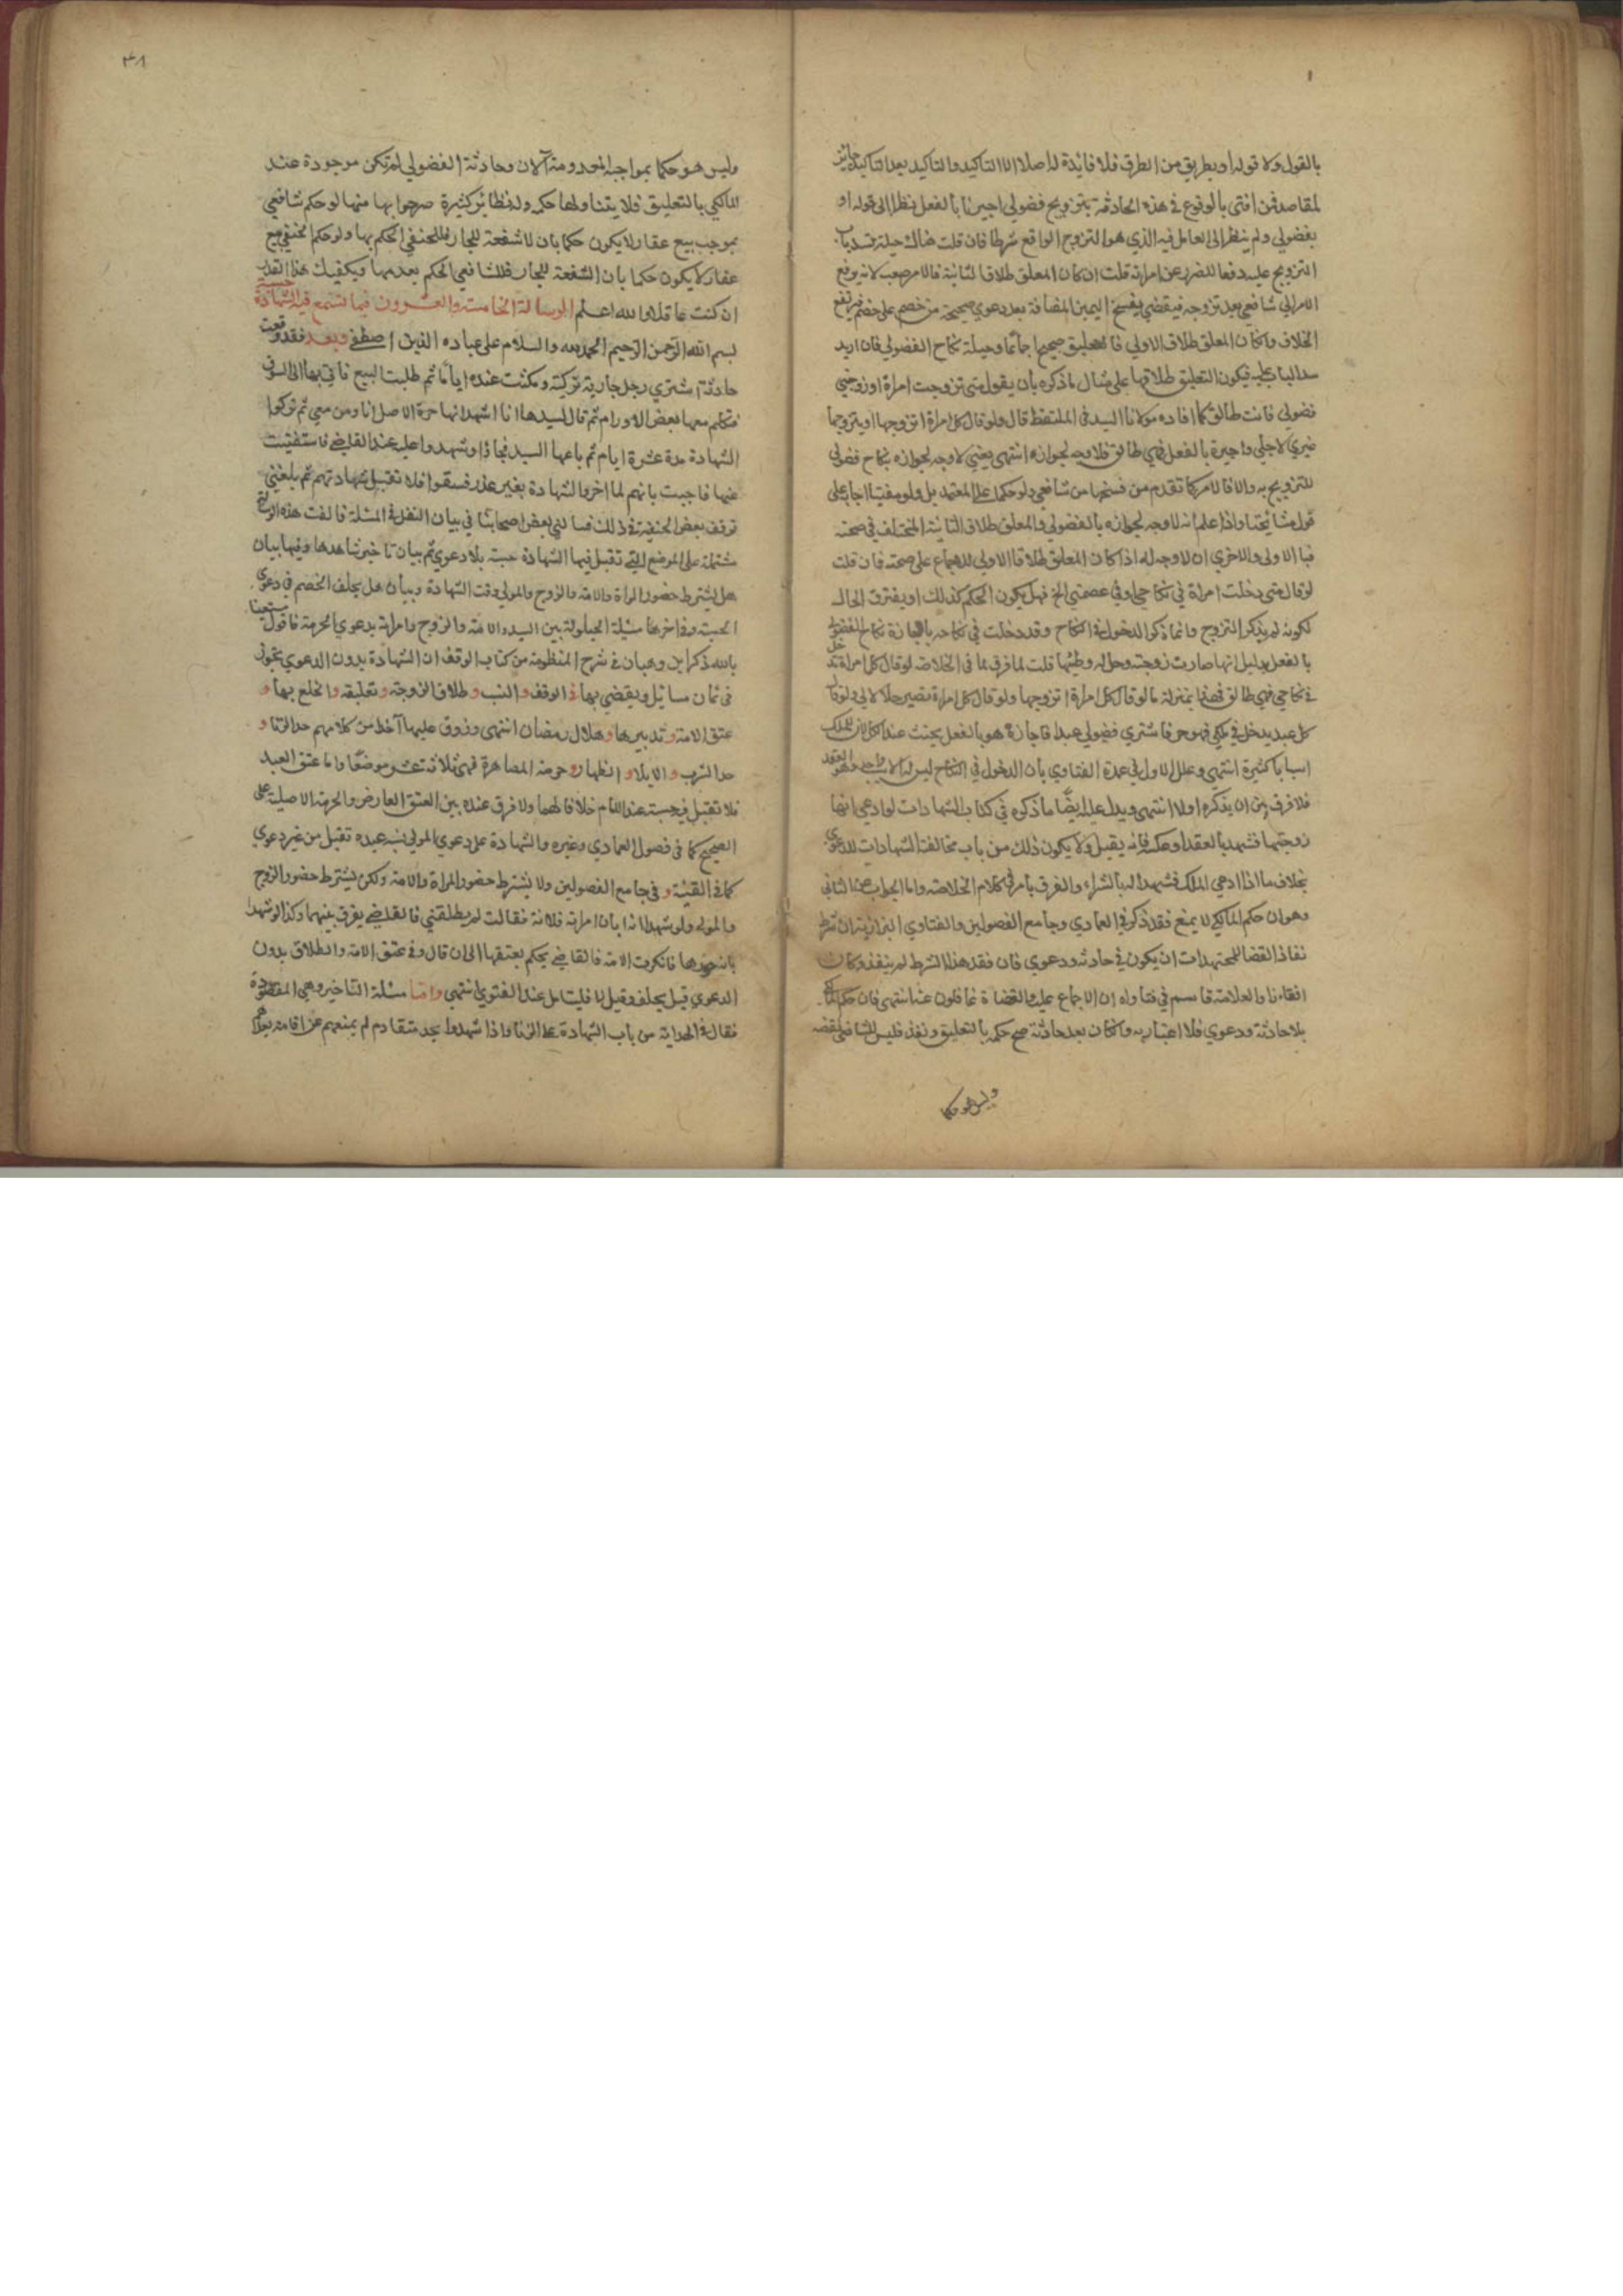 بالقول ولا قوله او بطريق من الطرق فلا فائدة له اصلا الا التاكيد والتاكيد بعد التاكيد جائز
لمقاصد فمن افتى بالوقوع في هذه الحادثة بتزويج فضولي اجيز بالفعل نظرا الى قوله او
بفضولي ولم ينظر الى العامل فيه الذي هو التزوج الواقع شرطا فان قلت هناك حيلة لسد باب
التزويج عليه دفعا للضرر عن امراته قلت ان كان المعلق طلاق الثانية فالامر صعب لانه يرفع
الامر الى شافعي بعد تزوجه فيقضي بفسخ اليمين المضافة بعد دعوى صحيحة من خصم على خصم فيرتفع
الخلاف وان كان المعلق طلاق الاولى فالتعليق صحيح اجماعا وحيلة نكاح الفضولي فان اريد
سد الباب عليه فيكون التعليق طلاقها على مثال ما ذكره بان يقول متى تزوجت امراة او زوجني
فضولي فانت طالق كما افاده مولانا السيد في الملتقط قال ولو قال كل امراة اتزوجها او يتزوجها
غيري لاجلي واجيزه بالفعل فهي طالق فلا وجه لجوازه انتهى يعني لا وجه لجوازه بنكاح فضولي
للتزويج به والا فالامر كما تقدم من فسخها من شافعي ولو حكما على المعتمد بل ولو مفتيا اجابه على
قول مشائخنا واذا علم انه لا وجه لجوازه بالفضولي والمعلق طلاق الثانية المختلف في صحته
فبالاولى والاحرى ان لا وجه له اذا كان المعلق طلاق الاولى للاجماع على صحته فان قلت
لو قال متى دخلت امراة في نكاحي او في عصمتي الخ فهل يكون الحكم كذلك او يفترق الحال
لكونه لم يذكر التزوج وانما ذكر الدخول في النكاح وقد دخلت في نكاحه باجازة نكاح الفضولي
بالفعل بدليل انها صارت زوجته وحل له وطئها قلت لا فرق لما في الخلاصة لو قال كل امراة تدخل
في نكاحي فهي طالق فهذا بمنزلة ما لو قال كل امراة اتزوجها ولو قال كل امراة تصير حلالا لي ولو قال
كل عبد يدخل في ملكي فهو حر فاشترى فضولي عبدا فاجازه هو بالفعل يحنث عند الكل لان للملك
اسبابا كثيرة انتهى وعلل الاول في عمدة الفتاوي بان الدخول في النكاح ليس له الا سبب واحد وهو العقد
فلا فرق بين ان يذكره او لا انتهى ويدل عليه ايضا ما ذكره في كتاب الشهادات لو ادعى انها
زوجتها فشهد بالعقد او عكسه فانه يقبل ولا يكون ذلك من باب مخالفة الشهادات للدعوى
بخلاف ما اذا ادعى الملك فشهدا له بالشراء والفرق ما مر في كلام الخلاصة واما الجواب عن الثاني
وهو ان حكم المالكي لا يمنع فقد ذكر في العمادي وجامع الفصولين والفتاوي البزازية ان شرط
نفاذ القضا للمجتهدات ان يكون في حادثة ودعوى فان فقد هذا الشرط لم ينفذ وكان
افتاء نا والعلامة قاسم في فتاواه ان الاجماع عليه والقضاة غافلون عنه انتهى فان حكم المالكي
بلا حادثة ودعوى فلا اعتبار به وان كان بعد حادثة صح حكمه بالتعليق ونفذ فليس للشافعي نقضه
وليس هو حكما
٣٨١
وليس هو حكما بمواجبه المعدومة الان وحادثة الفضولي لم تكن موجودة عند
المالكي بالتعليق فلا يتناولها حكمه وله نظائر كثيرة صرحوا بها منها لو حكم شافعي
بموجب بيع عقار لا يكون حكما بان لا شفعة للجار فللحنفي الحكم بها ولو حكم الحنفي ببيع
عقار لا يكون حكما بان الشفعة للجار فللشافعي الحكم بعدمها ويكفيك هذا القدر
ان كنت عاقلا والله اعلم الرسالة الخامسة والعشرون فيما تسمع فيه الشهادة حسبة
بسم الله الرحمن الرحيم الحمد لله والسلام على عباده الذين اصطفى وبعد فقد وقعت
حادثة اشترى رجل جارية تركية ومكثت عنده اياما ثم طلبت البيع فاتى بها الى السوق
فتكلم معها بعض الاورام ثم قال لسيدها انا اشهد انها حرة الاصل انا ومن معي ثم تركوا
الشهادة مدة عشرة ايام ثم باعها السيد فجاؤا وشهدوا عليه عند القاضي فاستفتيت
عنها فاجبت بانهم لما اخروا الشهادة بغير عذر فسقوا فلا تقبل شهادتهم ثم بلغني
توقف بعض الحنفية في ذلك فسالني بعض اصحابنا في بيان النقل في المسئلة فالفت هذه الرسالة
مشتملة على المواضع التي تقبل فيها الشهادة حسبة بلا دعوى ثم بيان تاخير شاهدها وفيها بيان
هل يشترط حضور المراة والامة والزوج والمولى وقت الشهادة وبيان هل يحلف الخصم في دعوى
الحسبة وفي اخرها مسئلة الحيلولة بين السيد والامة والزوج وامراته بدعوى الحرمة فاقول مستعينا
بالله ذكر ابن وهبان في شرح المنظومة من كتاب الوقف ان الشهادة بدون الدعوى تجوز
في ثمان مسائل ويقضي بها في الوقف والنسب وطلاق الزوجة وتعليقه والخلع بها و
عتق الامة وتدبيرها وهلال رمضان انتهى وزدت عليها اخذا من كلامهم حد الزنا و
حد الشرب والايلا والظهار وحرمة المصاهرة فهي ثلاثة عشر موضعا واما عتق العبد
فلا تقبل فيه حسبة عند الامام خلافا لهما ولا فرق عنده بين العتق العارض والحرية الاصلية على
الصحيح كما في فصول العمادي وغيره والشهادة على دعوى المولى نسب عبده تقبل من غير دعوى
كما في القنية وفي جامع الفصولين ولا يشترط حضور المراة والامة ولكن يشترط حضور الزوج
والمولى ولو شهدا بانه ابان امراته فلانة فقالت لم يطلقني فالقاضي يفرق بينهما وكذا لو شهدا
بانه حررها فانكرت الامة فالقاضي يحكم بعتقها الى ان قال وفي عتق الامة والطلاق بدون
الدعوى قيل يحلف وقيل لا فليتامل عند الفتوى انتهى واما مسئلة التاخير وهي المقصودة
فقال في الهداية من باب الشهادة على الزنا واذا شهدوا بحد متقادم لم يمنعهم عن اقامته بعدهم